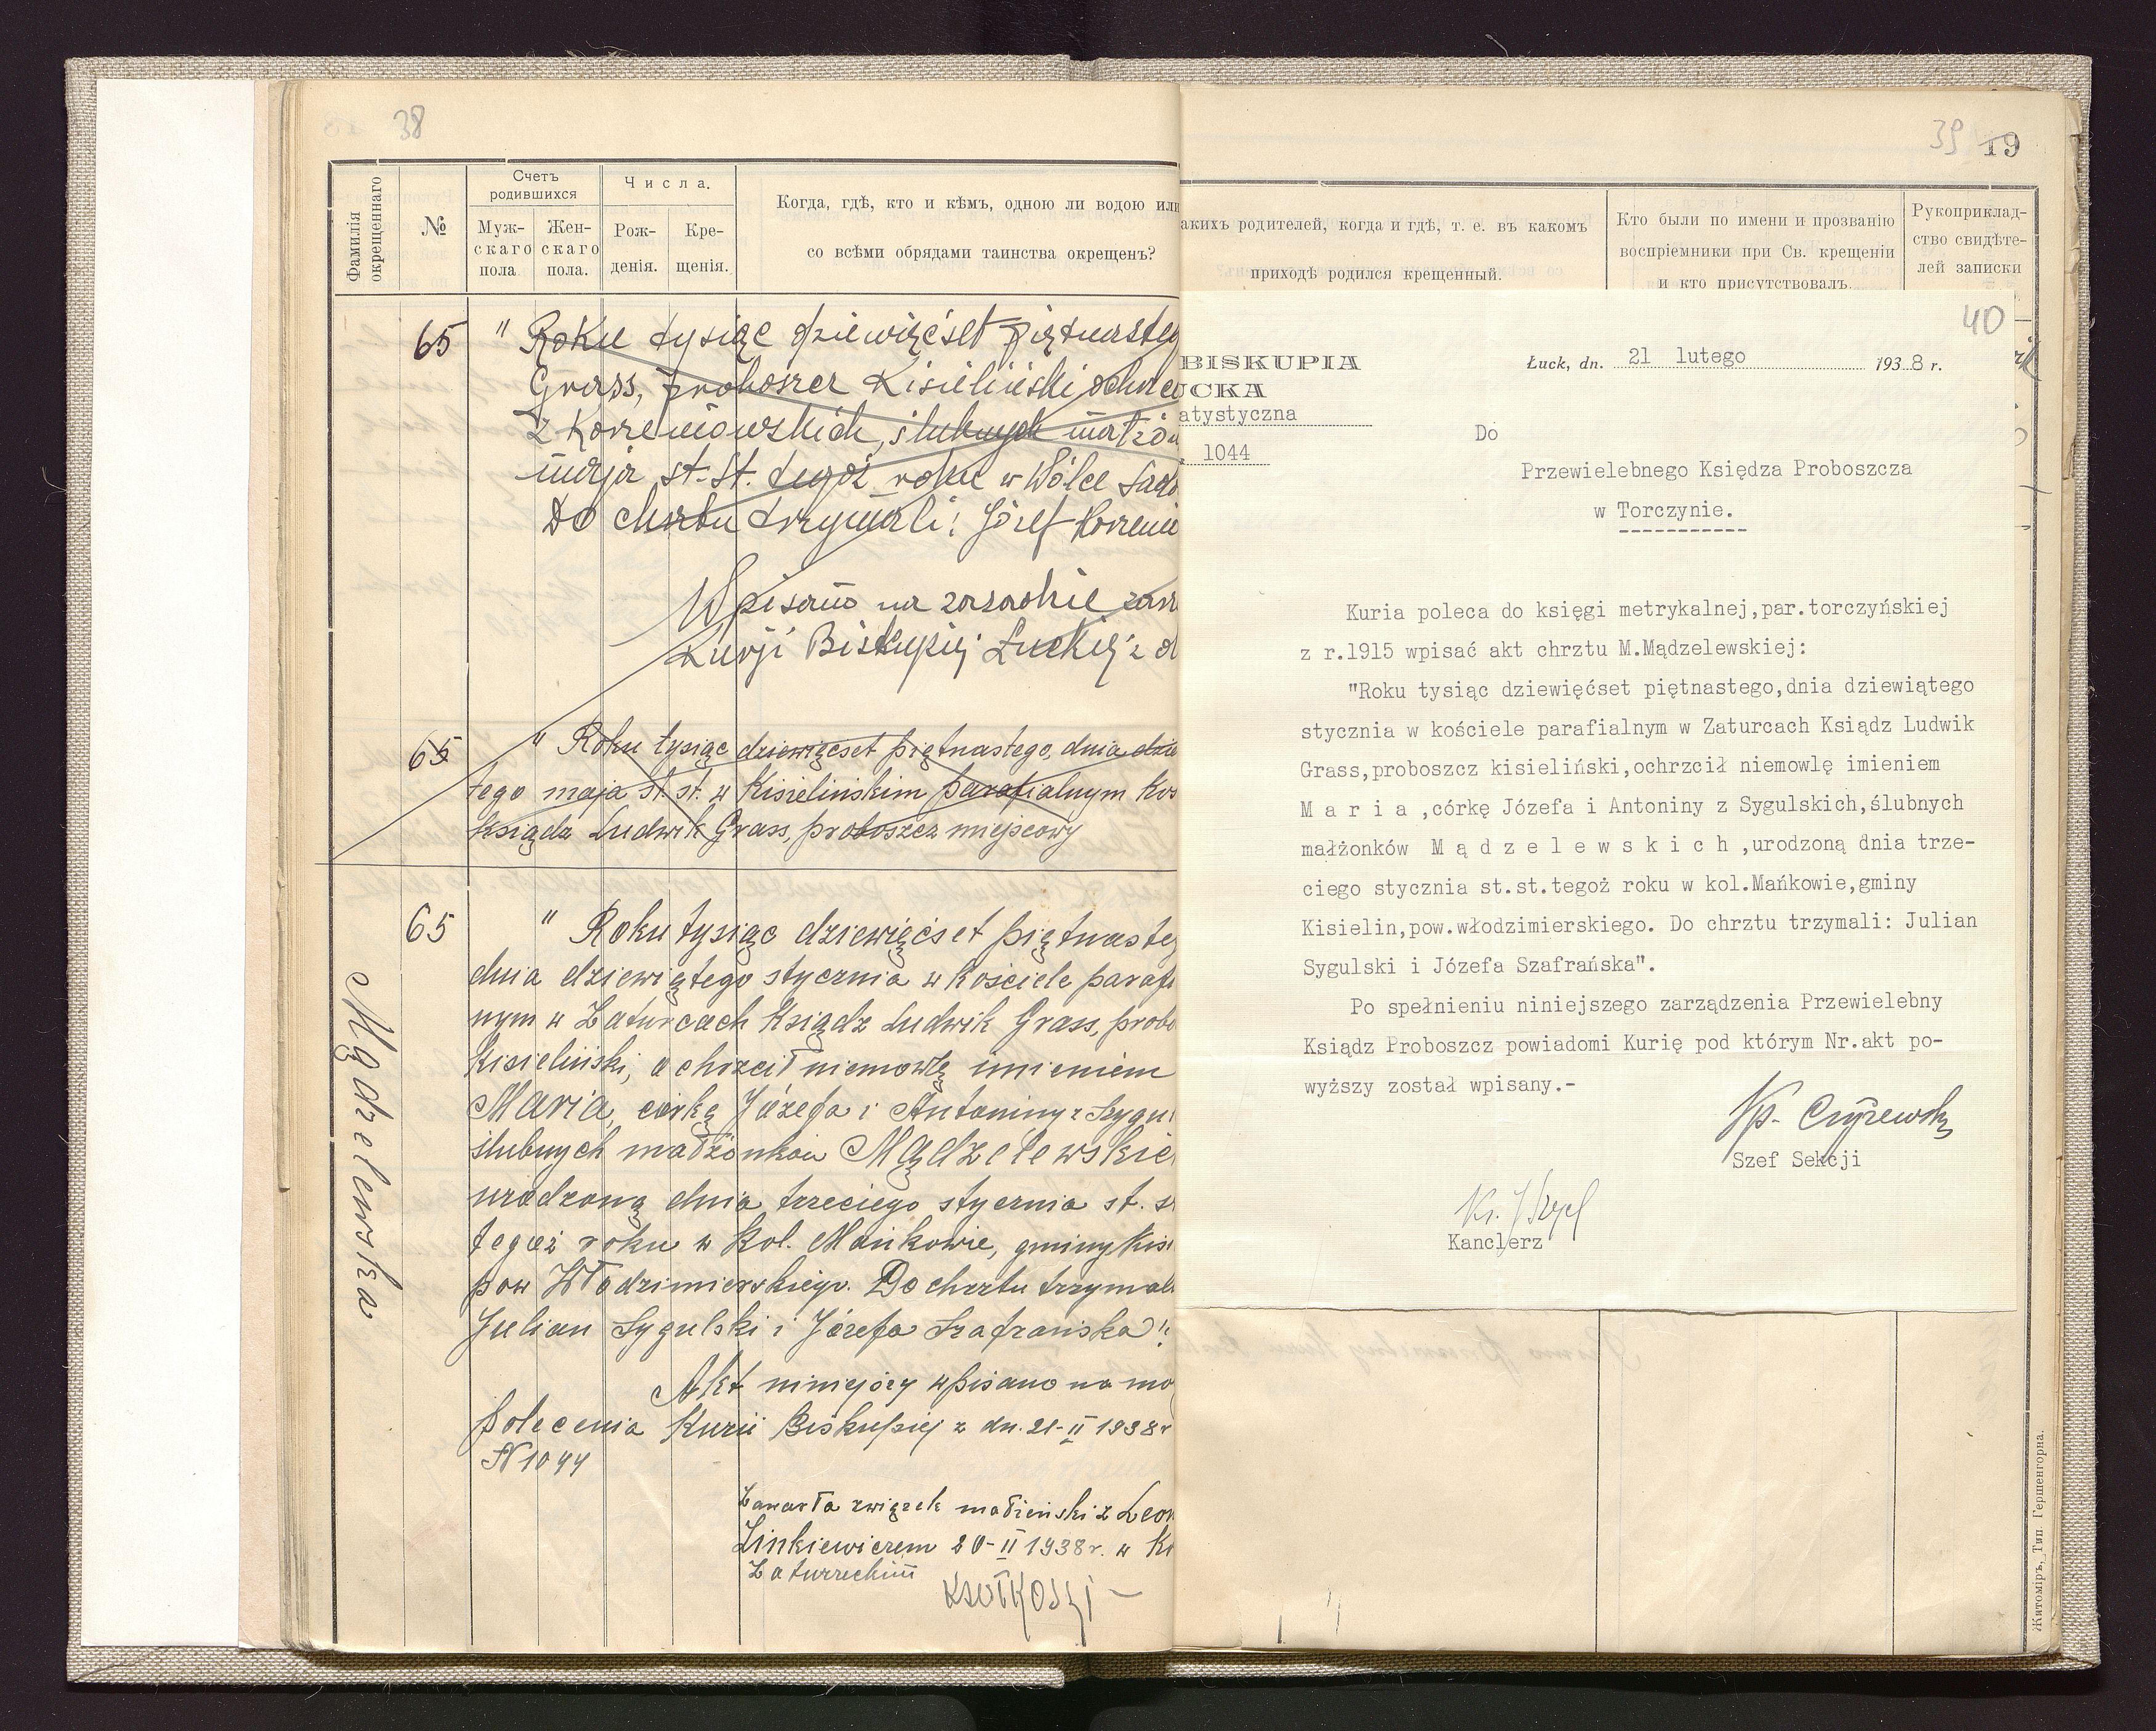 38
Фамилія окрещеннаго
№
Счетъ родившихся
Муж-скаго пола
Жен-скаго пола.
Числа.
Рож-денія.
Кре-щенія.
Когда, гдѣ, кто и кѣмъ, одною ли водою или
со всѣми обрядами таинства окрещенъ?
65 " Roku tysiąc dziewięćset piętnasteg
Grass, proboszcz Kisieliński ochrc
z Korzeniowskich, ślubnych małżon
maja st. st. tegoż roku w Wólce Sado
Do chrztu trzymali: Józef Korzenio
Wpisano na zasadzie zarz
Kurji Biskupiej Łuckiej z d
65 " Roku tysiąc dziewięćset piętnastego, dnia dzie
tego maja st. st. w Kisielińskim parafialnym Koś
Ksiądz Ludwik Grass, proboszcz miejscowy
65 " Roku tysiąc dziewięćset piętnasteg
dnia dziewiątego stycznia w kościele parafi
nym w Zaturcach Ksiądz Ludwik Grass, probo
Kisieliński, ochrzcił niemowlę imieniem
Maria, córkę Józefa i Antoniny z Sygul
ślubnych małżonków Mądzelewskic
urodzoną dnia trzeciego stycznia st. st
tegoż roku w Kol. Mańkowie, gminy Kisi
pow Włodzimierskiego. Do chrztu trzymali
Julian Sygulski i Józefa Szafrańska".
Mądzelewska
Akt niniejszy wpisano na mo
polecenia Kurii Biskupiej z dn. 21-II 1938r
N 1044
Zawarła związek małżeński z Leon
Linkiewiczem 20-II 1938r. w Ko
Zaturzeckim
39 19
акихъ родителей, когда и гдѣ, т. е. въ какомъ
приходѣ родился крещенный.
Кто были по имени и прозванію
воспріемники при Св. крещеніи
и кто присутствовалъ.
Рукоприклад-
ство свидѣте-
лей записки
40
BISKUPIA
UCKA
atystyczna
1044
Łuck, dn. 21 lutego 1938 r.
Do
Przewielebnego Księdza Proboszcza
w Torczynie.
Kuria poleca do księgi metrykalnej,par.torczyńskiej
z r.1915 wpisać akt chrztu M.Mądzelewskiej:
"Roku tysiąc dziewięćset piętnastego,dnia dziewiątego
stycznia w kościele parafialnym w Zaturcach Ksiądz Ludwik
Grass,proboszcz kisieliński,ochrzcił niemowlę imieniem
M a r i a ,córkę Józefa i Antoniny z Sygulskich,ślubnych
małżonków M ą d z e l e w s k i c h ,urodzoną dnia trze-
ciego stycznia st.st.tegoż roku w kol.Mańkowie,gminy
Kisielin,pow.włodzimierskiego. Do chrztu trzymali: Julian
Sygulski i Józefa Szafrańska".
Po spełnieniu niniejszego zarządzenia Przewielebny
Ksiądz Proboszcz powiadomi Kurię pod którym Nr.akt po-
wyższy został wpisany.-
Szef Sekcji
Kanclerz
Житоміръ, Тип. Гершенгорна.